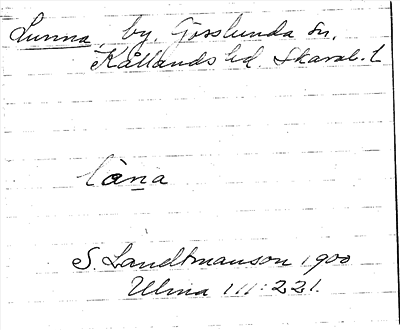 Lunna, by. Gösslunda sn.
Kållands hd. Skarab. l
lòna
S. Landtmanson 1900
Ulma 111:221.